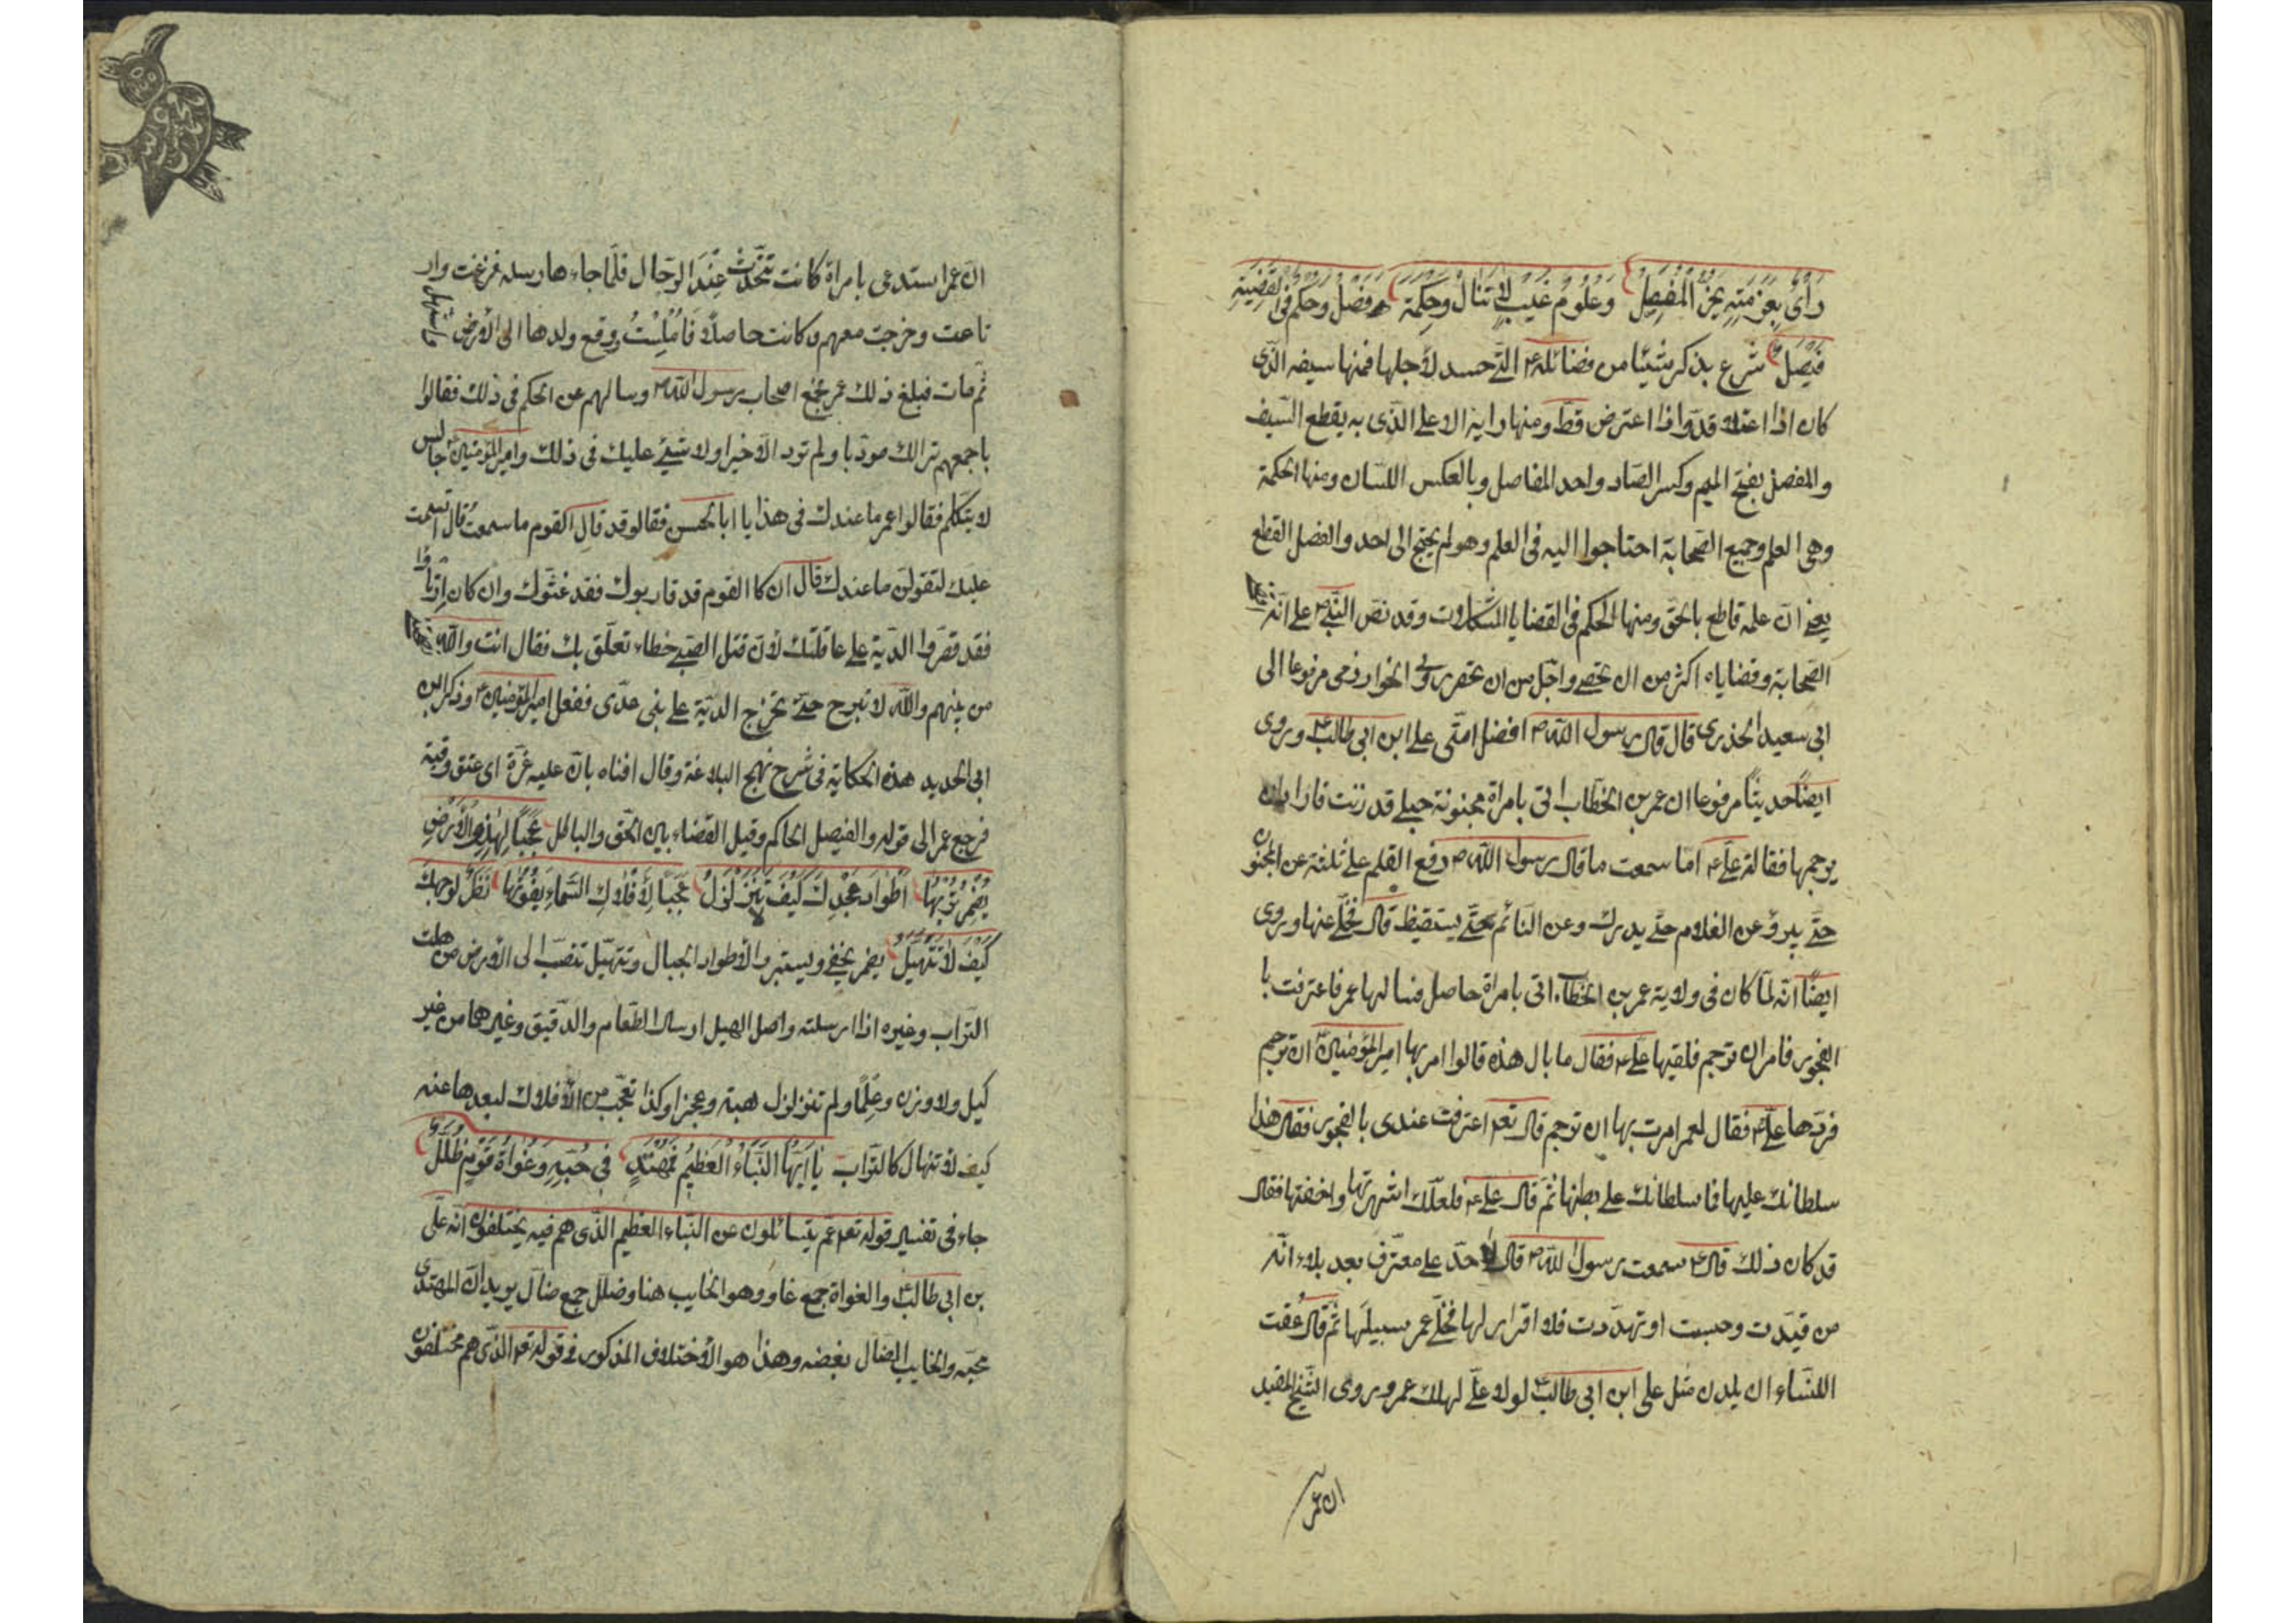 رَأيٌ بِعَزْمَتِهِ يَحُزُّ الْمَفْصِلُ وَعُلُومُ غَيْبٍ لَا تُنَالُ وَحِكْمَةٌ فَصْلٌ وَحُكْمٌ فِي الْقَضِيَّةِ
فَيْصَلٌ شرع بذكر شيئا من فضائله ع التي حسد لأجلها فمنها سيفه الذي
كان اذا اعتلا قدّ واذا اعترض قطّ ومنها رايه الاعلى الذي به يقطع السيف
والمفصل بفتح الميم وكسر الصاد واحد المفاصل وبالعكس اللسان ومنها الحكمة
وهي العلم وجميع الصحابة احتاجوا اليه في العلم وهو لم يحتج الى احد والفصل القطع
يعني ان علمه قاطع بالحق ومنها الحكم في القضايا المشكلات وقد نص النبي ص على انه
الصحابة وقضاياه اكثر من ان تحصى واجل من ان تحقر روى الخوارزمى مرفوعا الى
ابي سعيد الخذري قال قال رسول الله ص افضل امتي علي ابن ابي طالب ع وروى
ايضًا حديثًا مرفوعا ان عمر بن الخطاب اتى بامراة مجنونة حبلى قد زنت فاراد ان
يرجمها فقال له علي ع اما سمعت ما قال رسول الله ص رفع القلم على ثلثة عن المجنون
حتى يبرؤ عن الغلام حتى يدرك وعن النائم حتى يستقيظ قال فخلى عنها وروى
ايضًا انه لما كان في ولاية عمر بن الخطاب اتى بامراة حاصل فسالها عمر فاعترفت با
الفجور فامر ان ترجم فلقيها علي ع فقال ما بال هذه قالوا امر بها امير المؤمنين ان ترجم
فردها علي ع فقال لعمر امرت بها ان ترجم قال نعم اعترفت عندى بالفجور فقال هذا
سلطانك عليها فما سلطانك على بطنها ثم قال علي ع فلعلك انتهرتها واخفتها فقال
قد كان ذلك قال ع سمعت رسول الله ص قال لا حد على معترف بعد بلاء انه
من قيدت وحبست او تهددت فلا اقرار لها فخلى عمر سبيلها ثم قال عقت
اللنساء ان يلدن مثل علي ابن ابي طالب ع لولا علي لهلك عمر وروى الشيخ المفيد
ان عمر
ان عمر استدعى بامراة كانت تتحدّث عِنْدَ الرجال فلما جاءها رسله فزعت وار
تاعت وخرجت معهم وكانت حاصلًا فاملست ووقع ولدها الى الأرض
ثم مات فبلغ ذلك عمر فجمع اصحاب رسول الله ص وسالهم عن الحكم في ذلك فقالوا
باجمعهم نراك مودبا ولم ترد الّا خيرا ولا شيئ عليك في ذلك وامير المؤمنين ع جالس
لا يتكلم فقالوا عمر ما عندك في هذا يا ابا الحسن فقالو قد قال القوم ما سمعت قال اقسمت
عليك لتقولن ما عندك قال ان كا القوم قد قاربوك فقد غشوك وان كان ارتاوا
فقد قصروا الدية على عاقلتك لأن قتل الصبي خطاء تعلق بك فقال انت والله
من بينهم والله لا تبرح حتى تخرج الدية على بني عدى ففعل امير المؤمنين ع وذكر ابن
ابي الحديد هذه الحكاية في شرح نهج البلاغة وقال افتاه بان عليه غرة اى عتق رقبة
فرجع عمر الى قوله والفيصل الحاكم وقيل القضاء بين الحق والباطل عَجَبًا لِهٰذِهِ الْأَرْضِ
يُضْمِرُ تُرْبُهَا اَطْوَادَ مَجْدِكَ كَيْفَ لَا تَتَزَلْزَلُ عَجَبًا لِأَفْلَاكِ السَّمَاءِ يَفُوتُهَا نَظَرٌ لِوَجْهِكَ
كَيْفَ لَا تَتَهَيَّلُ يضمر يخفي ويستر والأطواد الجبال وتتهيل تنصبّ الى الأرض من هلت
التراب وغيره اذا ارسلته واصل الهيل ارسال الطعام والدقيق وغيرهما من غير
كيل ولا وزن وعِلْمًا ولم تتزلزل هيبة وعجزا وكذا تعجّب من الأفلاك لبعدها عنه
كيف لا تنهال كالتراب يَا اَيُّهَا النَّبَاءُ الْعَظِيمُ فَمُهْتَدٍ فِي حُبِّهِ وَغُوَاةُ قَوْمٍ ضُلَّلُ
جاء في تفسير قوله تعم عم يتسائلون عن النباء العظيم الذي هم فيه يختلفون انه علي
بن ابي طالب ع والغواة جمع غاو وهو الخايب هنا وضلل جمع ضال يريد ان المهتدى
محبه والخايب الضال بغضه وهذا هو الأختلاف المذكور في قوله تعم الذي هم مختلفون